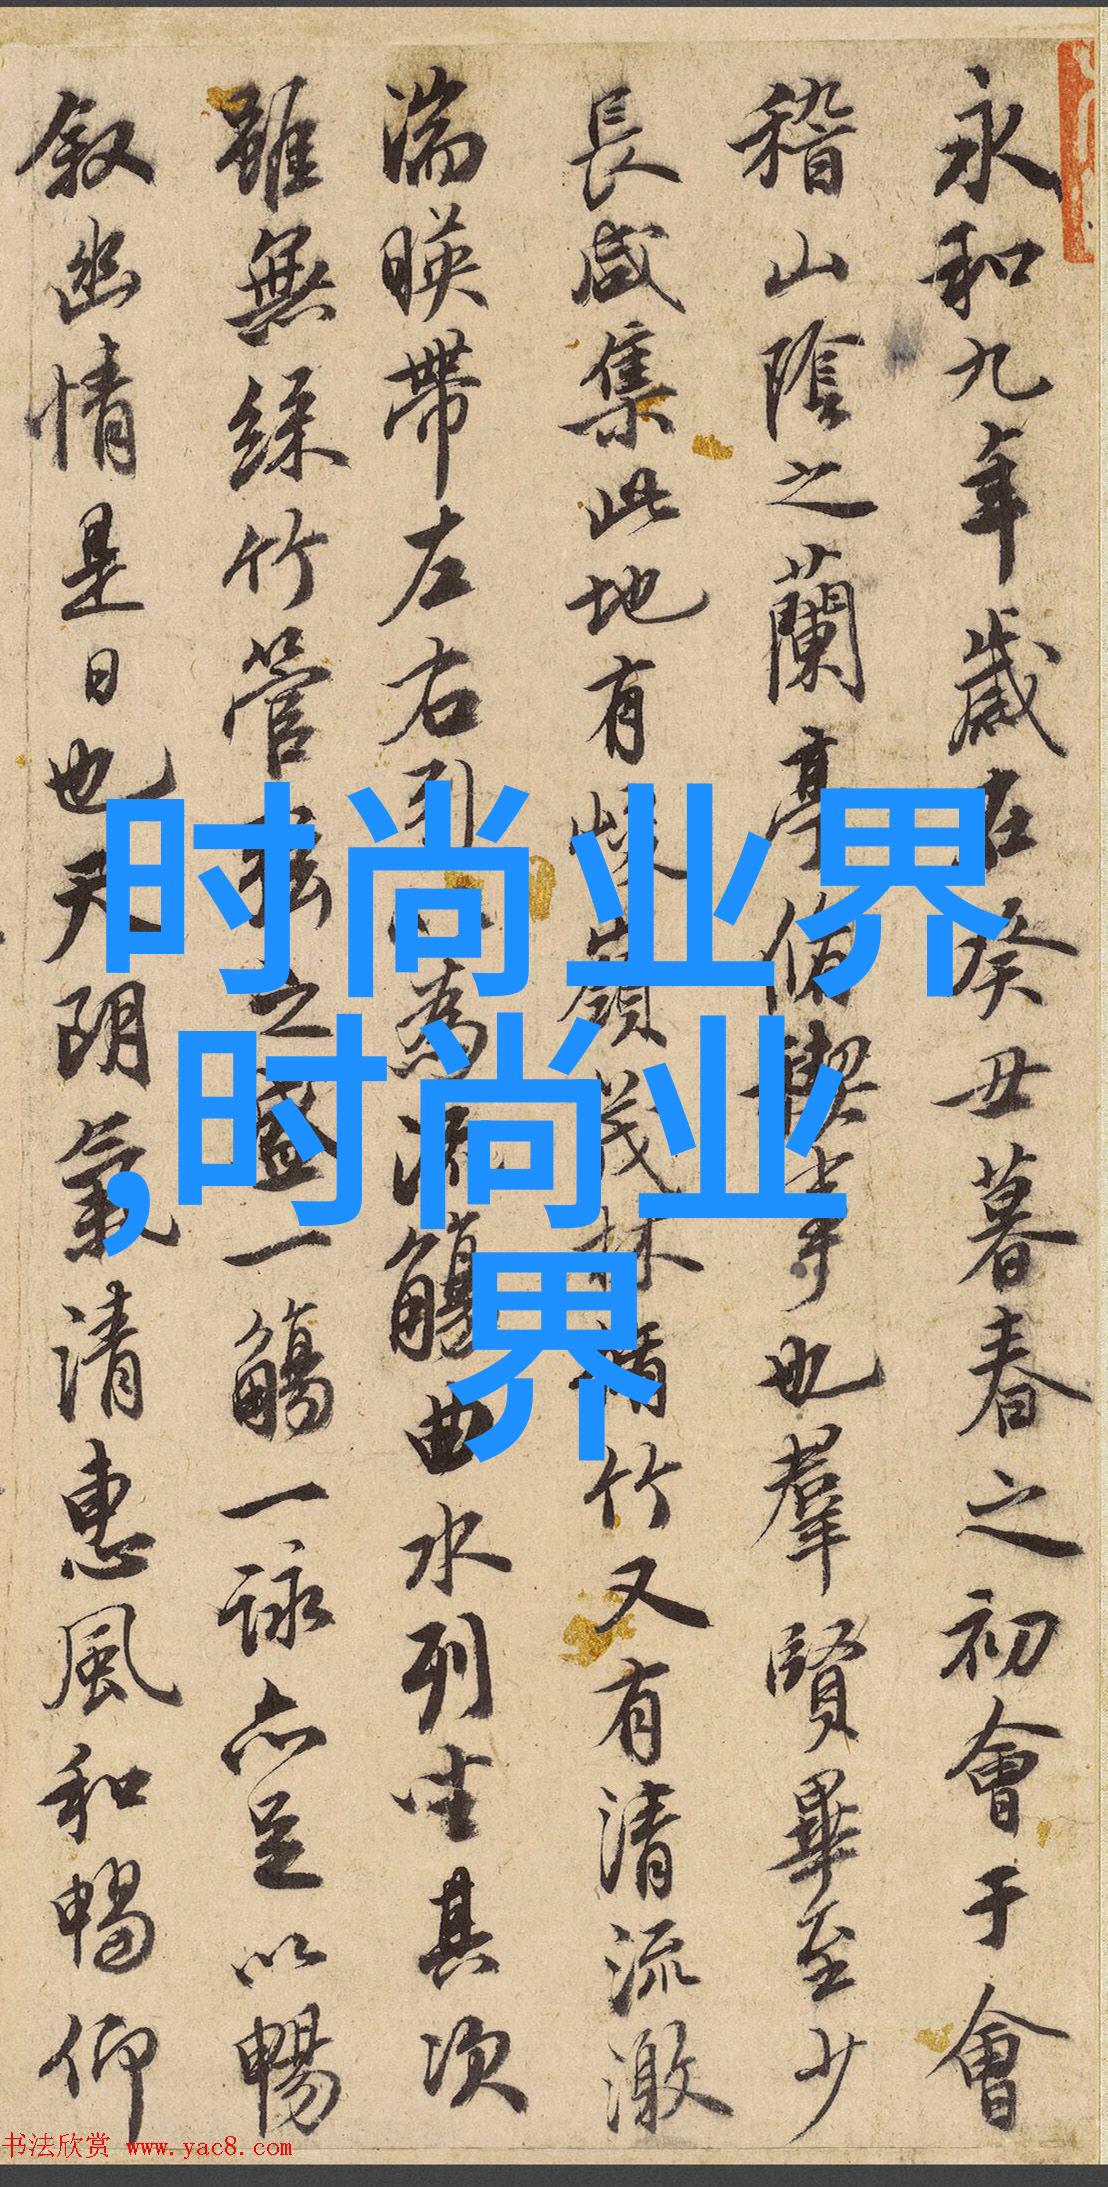 永和九年歲在癸丑暮春之初會于會
稽山陰之蘭亭脩禊事也羣賢畢至少
長咸集此地有峻嶺茂林脩竹又有清流激
湍暎帶左右引以為流觴曲水列坐其次
雖無絲竹管弦之盛一觴一詠亦足以暢
叙幽情是日也天朗氣清惠風和暢仰
时尚业界
,时尚业
界
书法欣赏 www.yac8.com